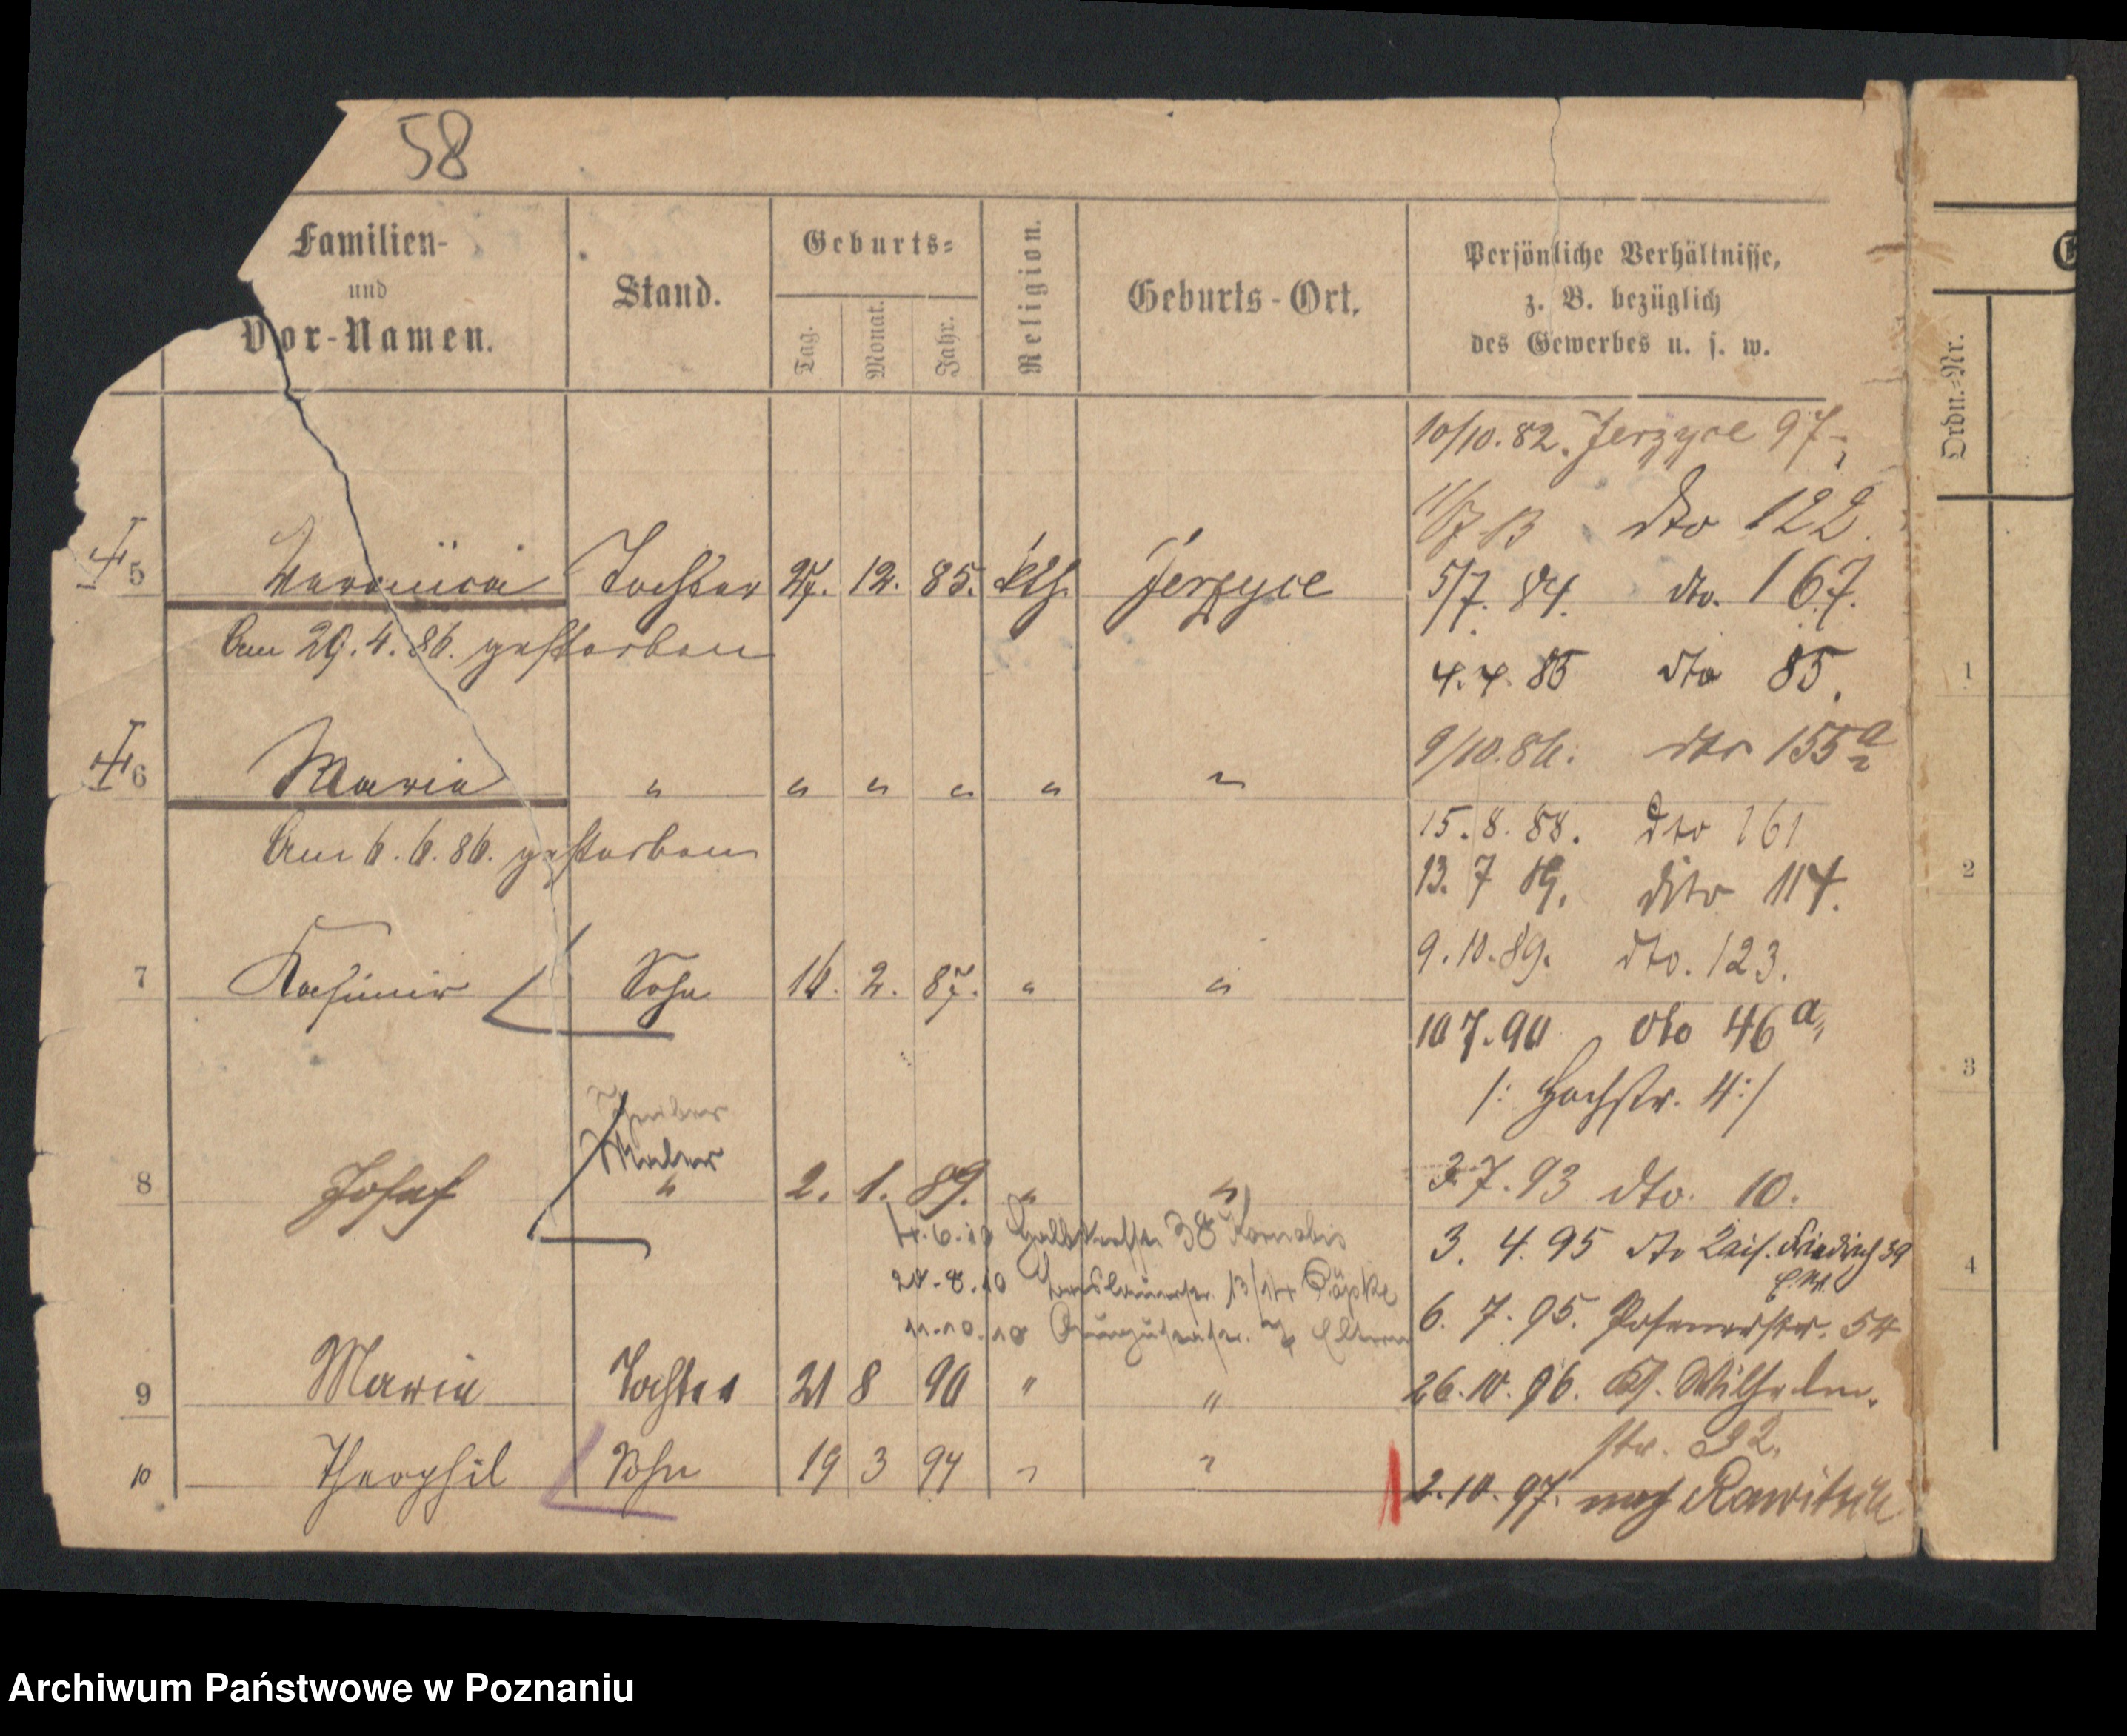 58
Familien-
und
Vor-Namen.
Stand.
Geburts-
Tag.
Monat.
Jahr.
Religion.
Geburts-Ort.
Persönliche Verhältnisse,
z. B. bezüglich
des Gewerbes u. s. w.
Ordn.-Nr.
10/10. 82. Jerzyce 97
dto 122.
5 Veronica Tochter 27. 12. 85. kth. Jerzyce
5/7. 84. dto. 167.
Am 29. 4. 86. gestorben
4. 4. 85 dto 85.
1
9/10. 86. dto 155a
6 Maria " " " " " "
15. 8. 88. dto 161
Am 6. 6. 86. gestorben
13. 7 89. dito 114.
2
9. 10. 89. dto. 123.
7 Kasimir Sohn 16. 2. 87. " "
10 7. 90 dto 46a
3
/: Hochstr. 4 :/
Schreiber
Maler
8 Josef " 2. 1. 89. " "
3. 7. 93 dto. 10.
4. 6. 10 38
3. 4. 95 dto Kais. Friedrich 39
4
13/14 Köpke
6. 7. 95. Posenerstr. 54
11. 10. 10 Eltern
9 Maria Tochter 21 8 90 " "
26. 10. 96. Kf. Wilhelm-
str. 32.
10 Theophil Sohn 19 3 94 " "
2. 10. 97. nach Rawitsch
Archiwum Państwowe w Poznaniu